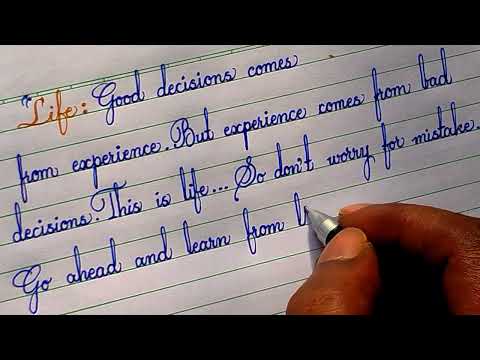 "Life: Good decisions comes
from experience. But experience comes from bad
decisions. This is life... So don't worry for mistake.
Go ahead and learn from